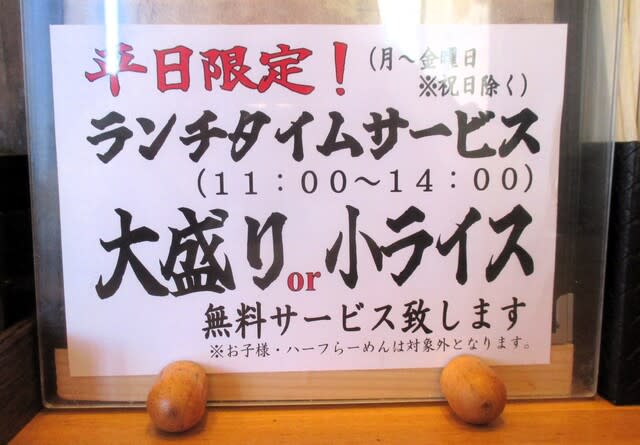 平日限定！（月～金曜日
※祝日除く）
ランチタイムサービス
（１１：００～１４：００）
大盛りor小ライス
無料サービス致します
※お子様・ハーフらーめんは対象外となります。